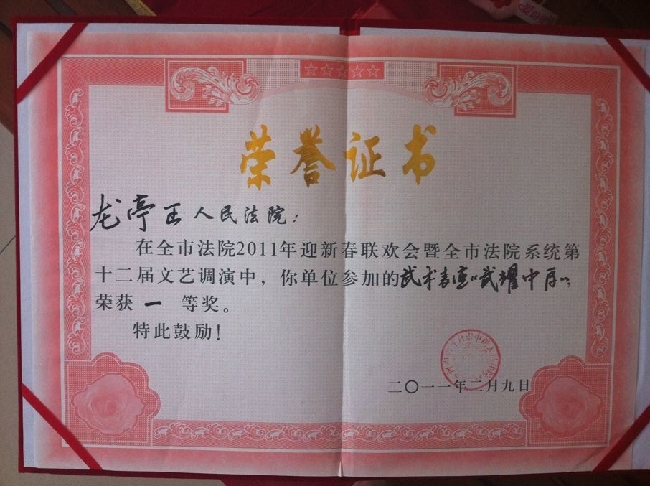 荣誉证书
龙亭区人民法院:
在全市法院2011年迎新春联欢会暨全市法院系统第
十二届文艺调演中,你单位参加的武术表演"武耀中原"
荣获一等奖。
特此鼓励!
二〇一一年二月九日